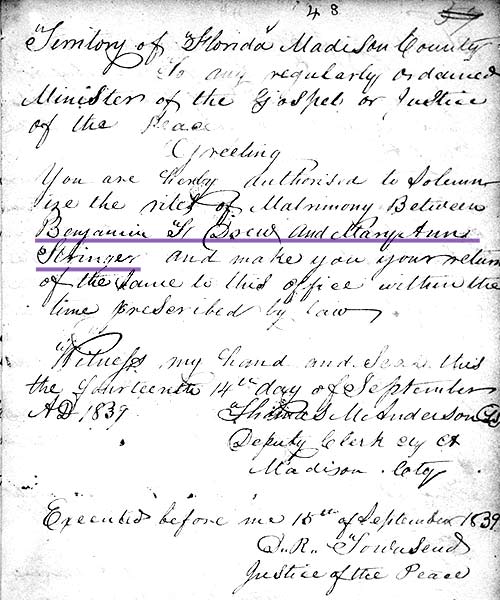 48
Territory of Florida Madison County
To any regularly ordained
Minister of the Gospel or Justice
of the Peace
Greeting
You are herby authorised to Solemn
ize the rites of Matrimony Between
Benjamin Drew and Mary Ann
Stringer and make you your return
of the Same to this office within the
time prescribed by law
Witness my hand and Seal this
the fourteenth 14th day of September
AD 1839 Thomas M Anderson
Deputy Clerk Ct
Madison Coty
Executed before me 15th of September 1839
D. R. Townsend
Justice of the Peace